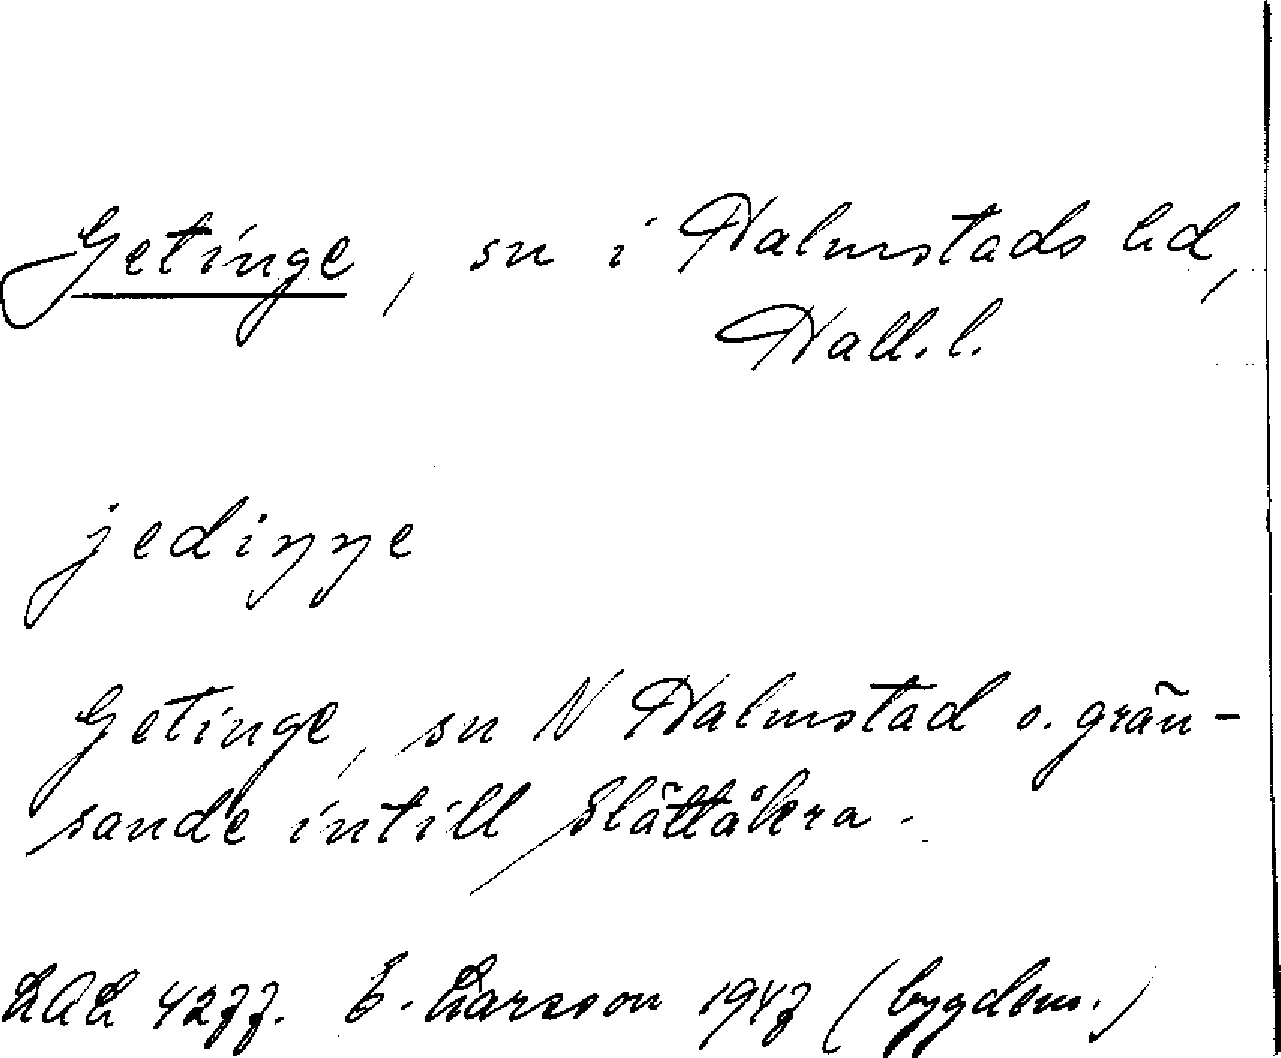 Getinge, sn i Halmstads hd,
Hall. l.
jediŋŋe
Getinge, sn N Halmstad o. grän-
sande intill Slättåkra.
LAL 4277. E. Larsson 1947 (bygdem.)